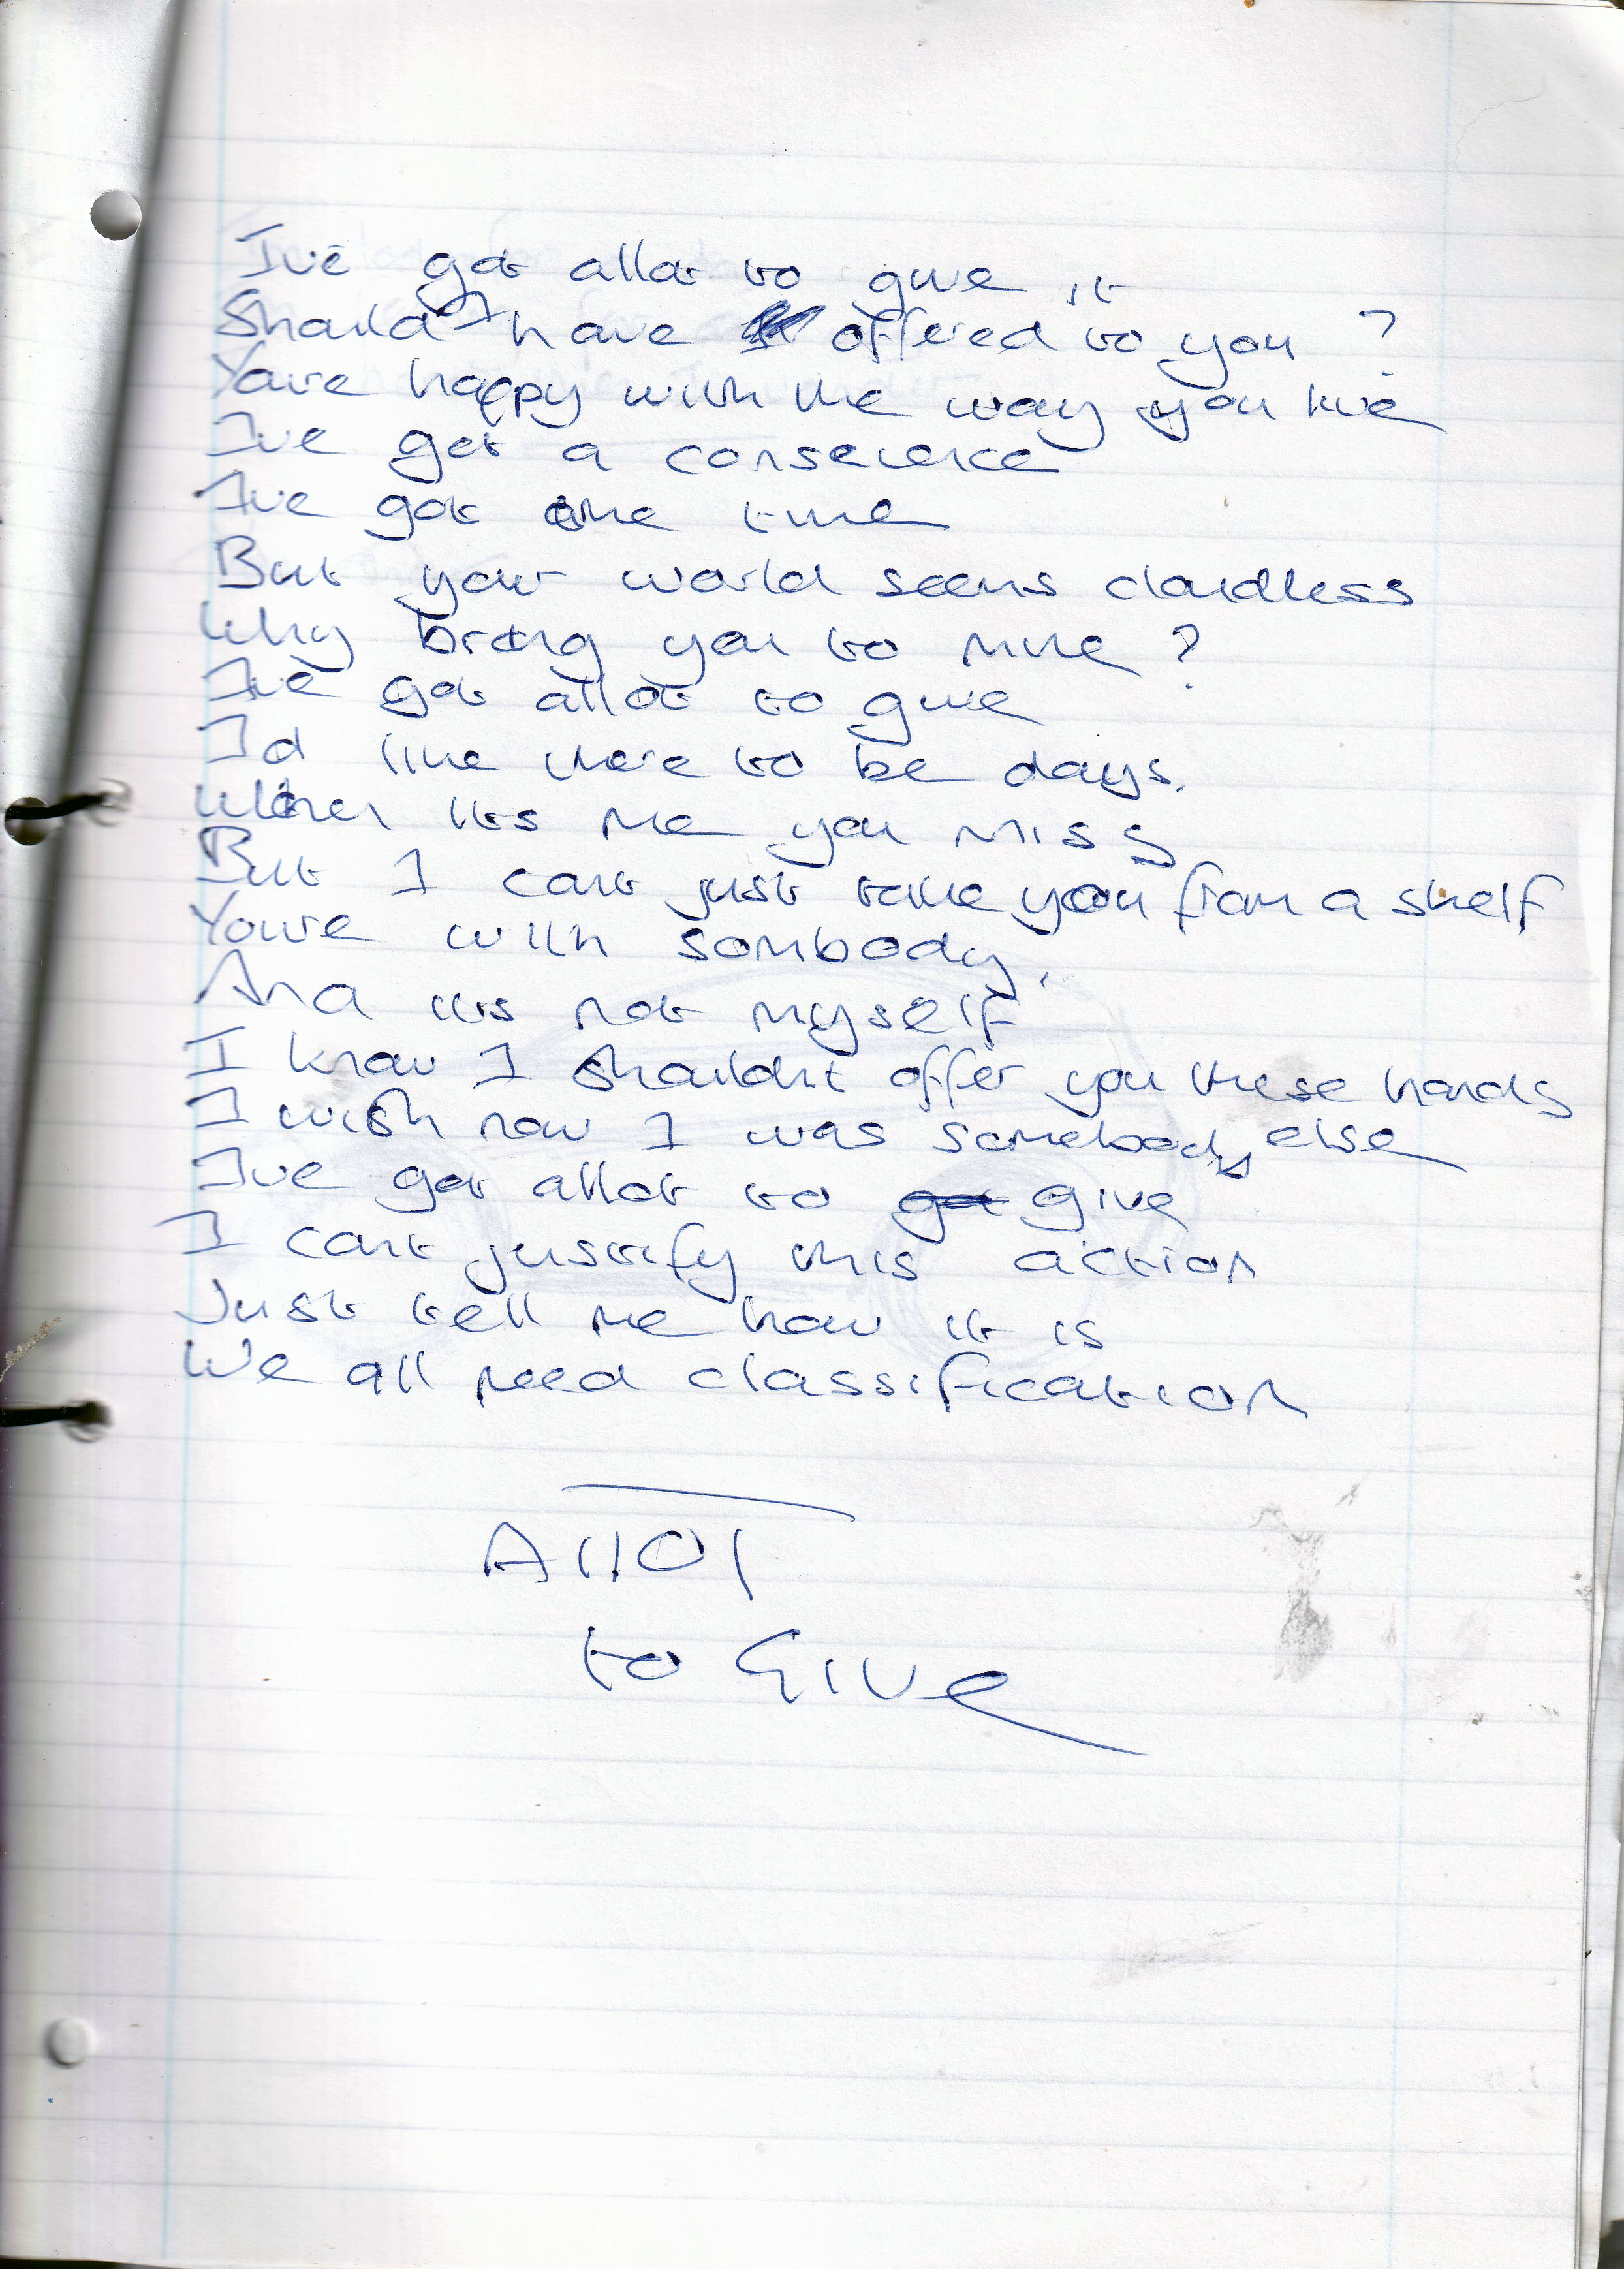 Ive got allot to give it
Should I have offered to you ?
Youre happy with the way you live
Ive got a conscience
Ive got the time
But your world seems cloudless
Why bring you to mine ?
Ive got allot to give
Id like there to be days.
When its me you miss
But I cant just take you from a shelf
Youre with sombody,
And its not myself
I know I shouldnt offer you these hands
I wish now I was somebody else
Ive got allot to got give
I cant justify this action
Just tell me how it is
We all need classification
Allot
to Give